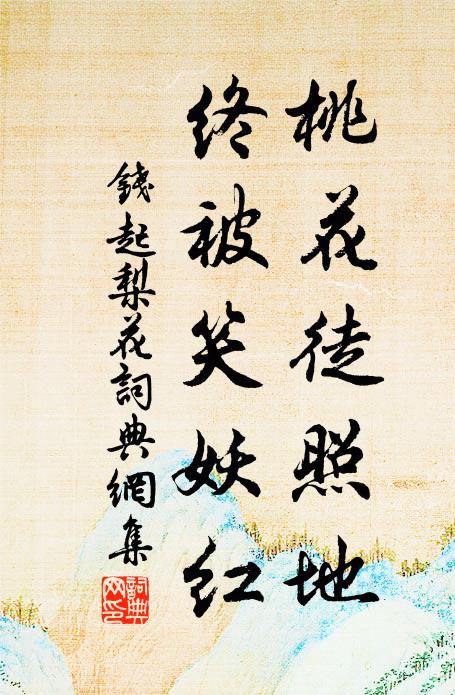 桃花徒照地
終被笑妖红
錢起梨花詞典網集
詞典网印